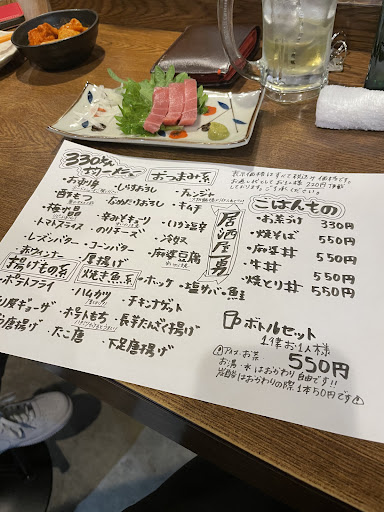 330えん
おつまみ系
表示価格はすべて税込み価格です。
お通し代としてお1人様 330円 頂戴
しております。ご了承ください。
・お新香
・しらすおろし
・チャンジャ
・酢もつ
・なめたけおろし
・キムチ
・梅水晶
・辛みそキュウリ
・いか塩辛
・トマトスライス
・のりチーズ
・冷奴
・レーズンバター
・コーンバター
・麻婆豆腐
・赤ウインナー
・厚揚げ
居酒屋一男
ごはんもの
・お茶づけ 330円
・焼そば 550円
・麻婆丼 550円
・牛丼 550円
・焼とり丼 550円
揚げもの系
焼き魚系
・ホッケ
・塩サバ
・鮭
・ポテトフライ
・ハムカツ
・チキンナゲット
・ポテトもち
・長芋たんざく揚げ
唐揚げ
・たこ唐
・下足唐揚げ
ボトルセット
1律お1人様
550円
アイス・お茶
お湯・水はおかわり自由です!!
炭酸はおかわりの際 1本50円です